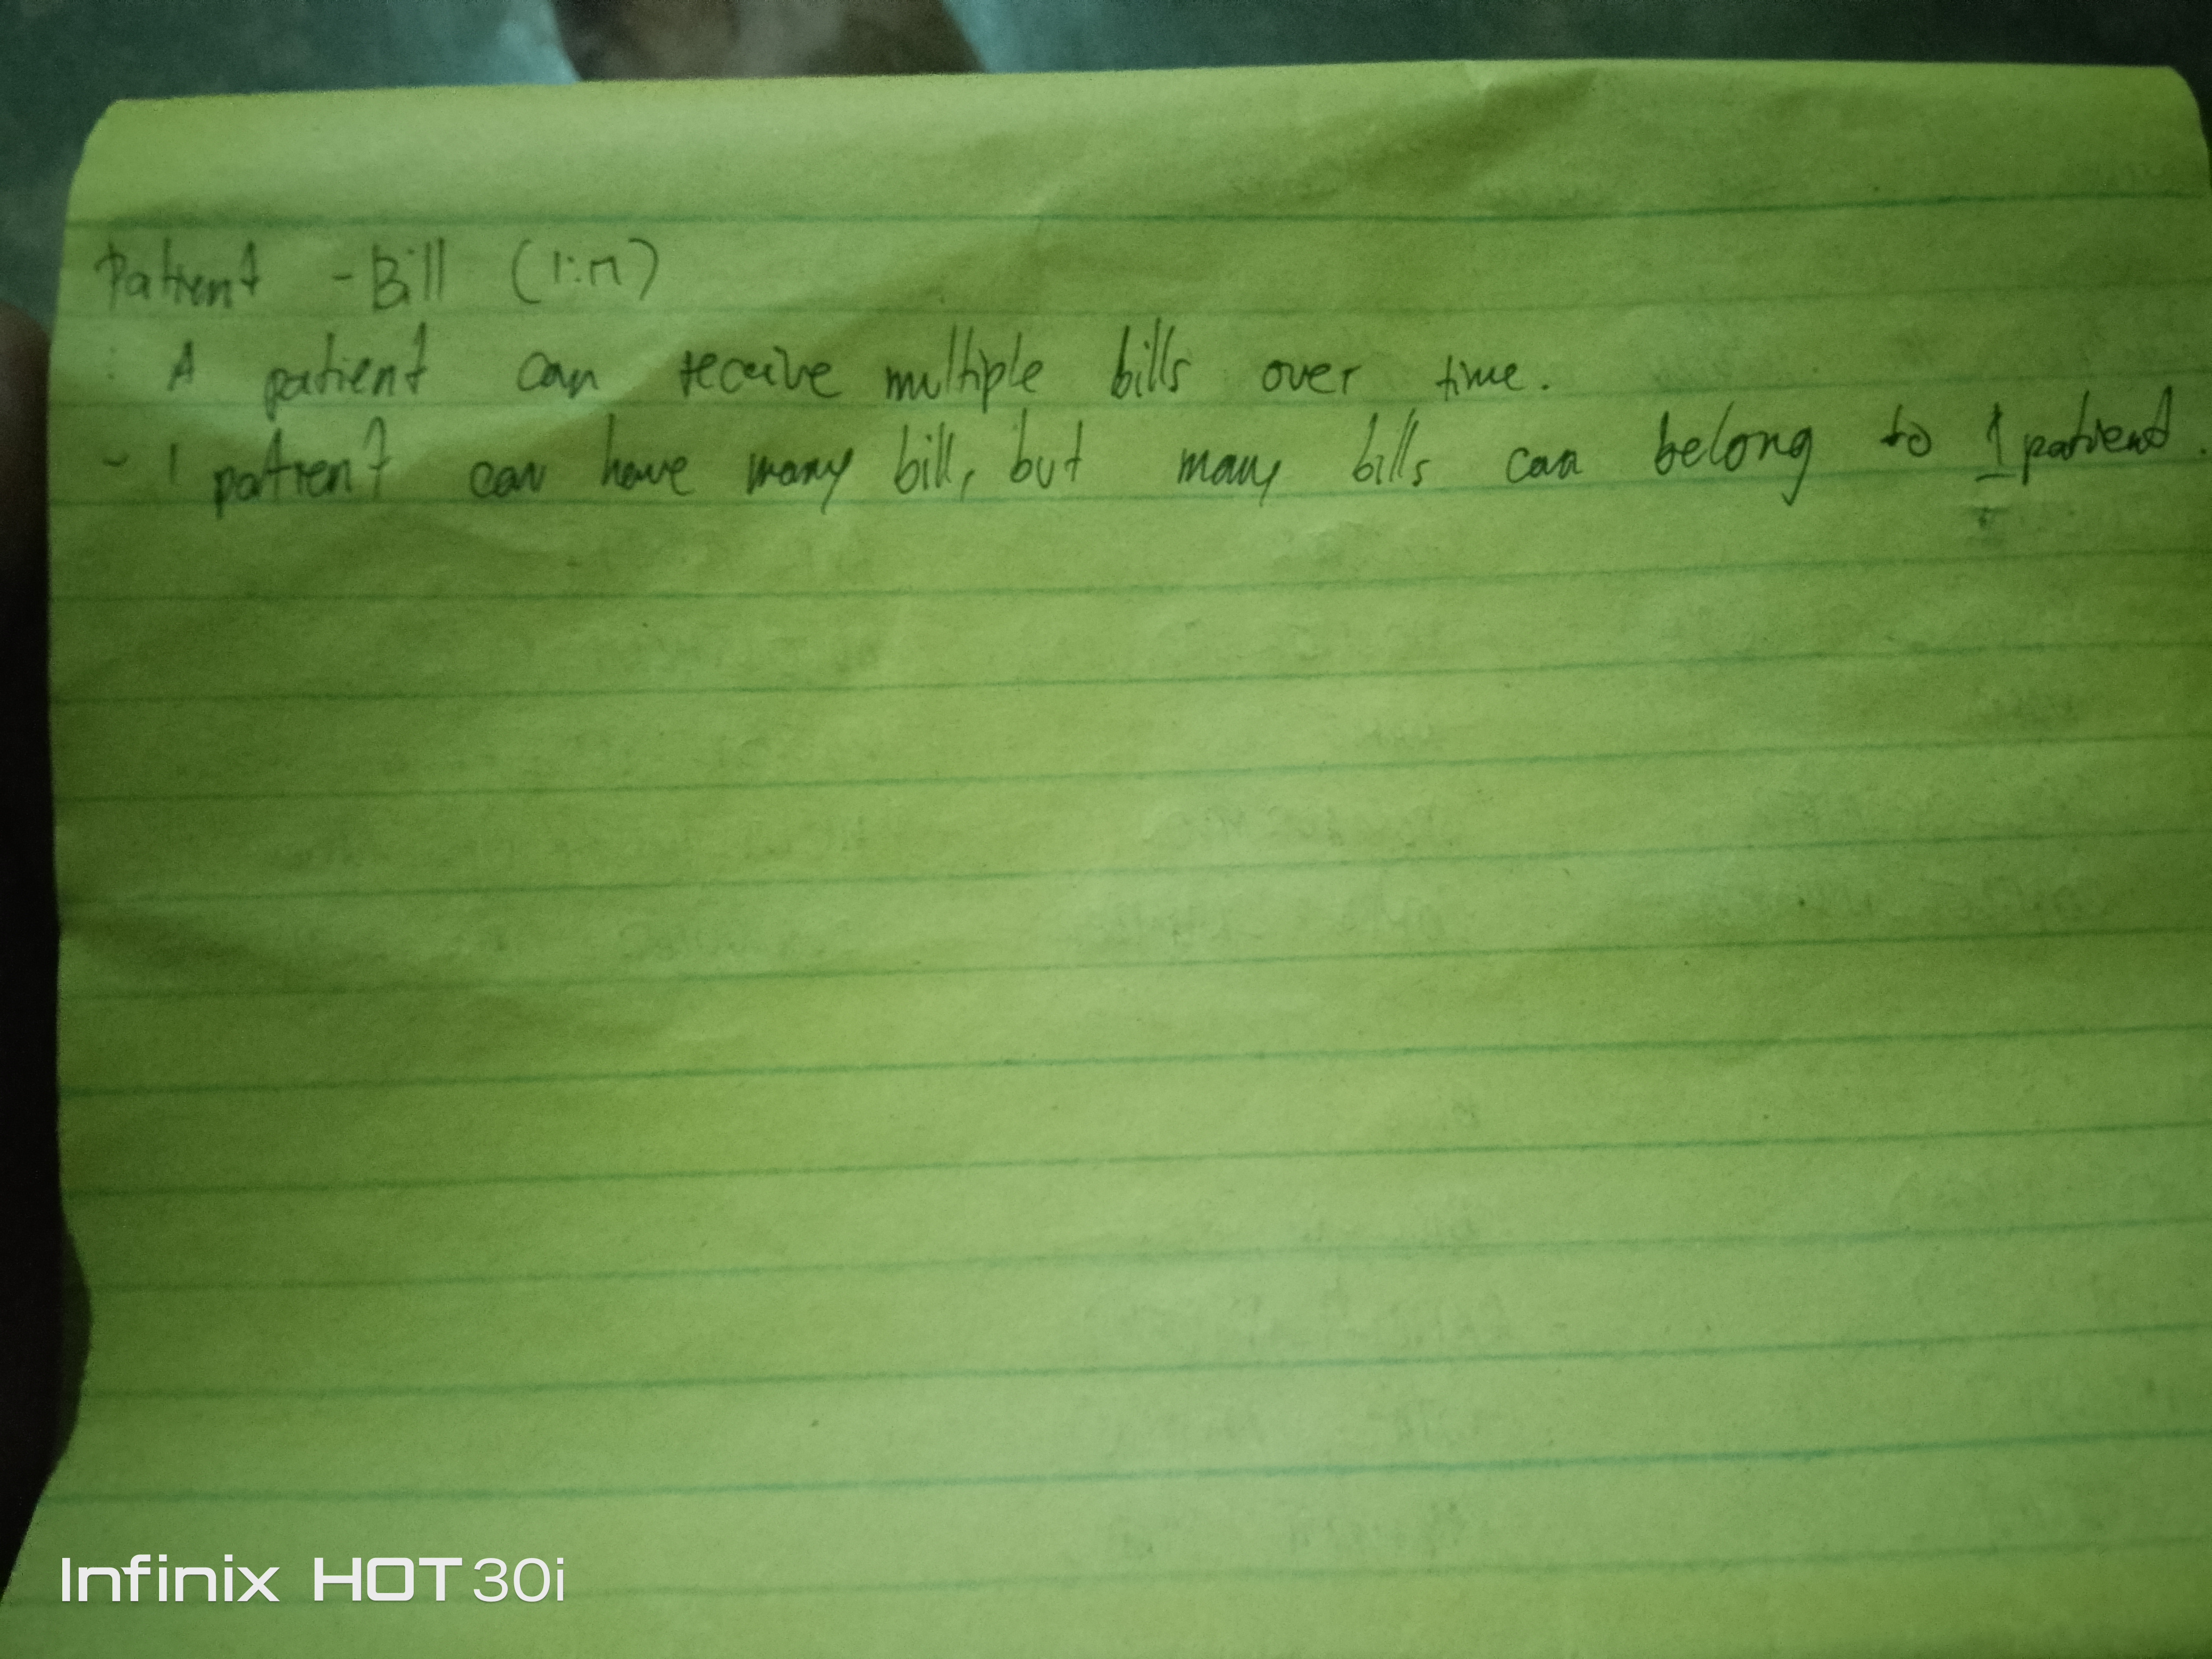 Patient - Bill (1:M)
: A patient can receive multiple bills over time.
- 1 patient can have many bill, but many bills can belong to 1 patient.
Infinix HOT 30i